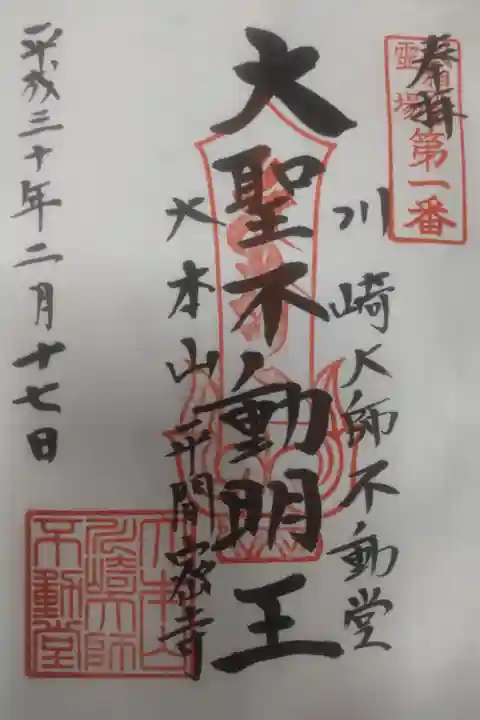 奉拝
靈場
第一番
川崎大師不動堂
大聖不動明王
大本山平間密寺
平成三十年二月十七日
大本山
川崎大師
不動堂